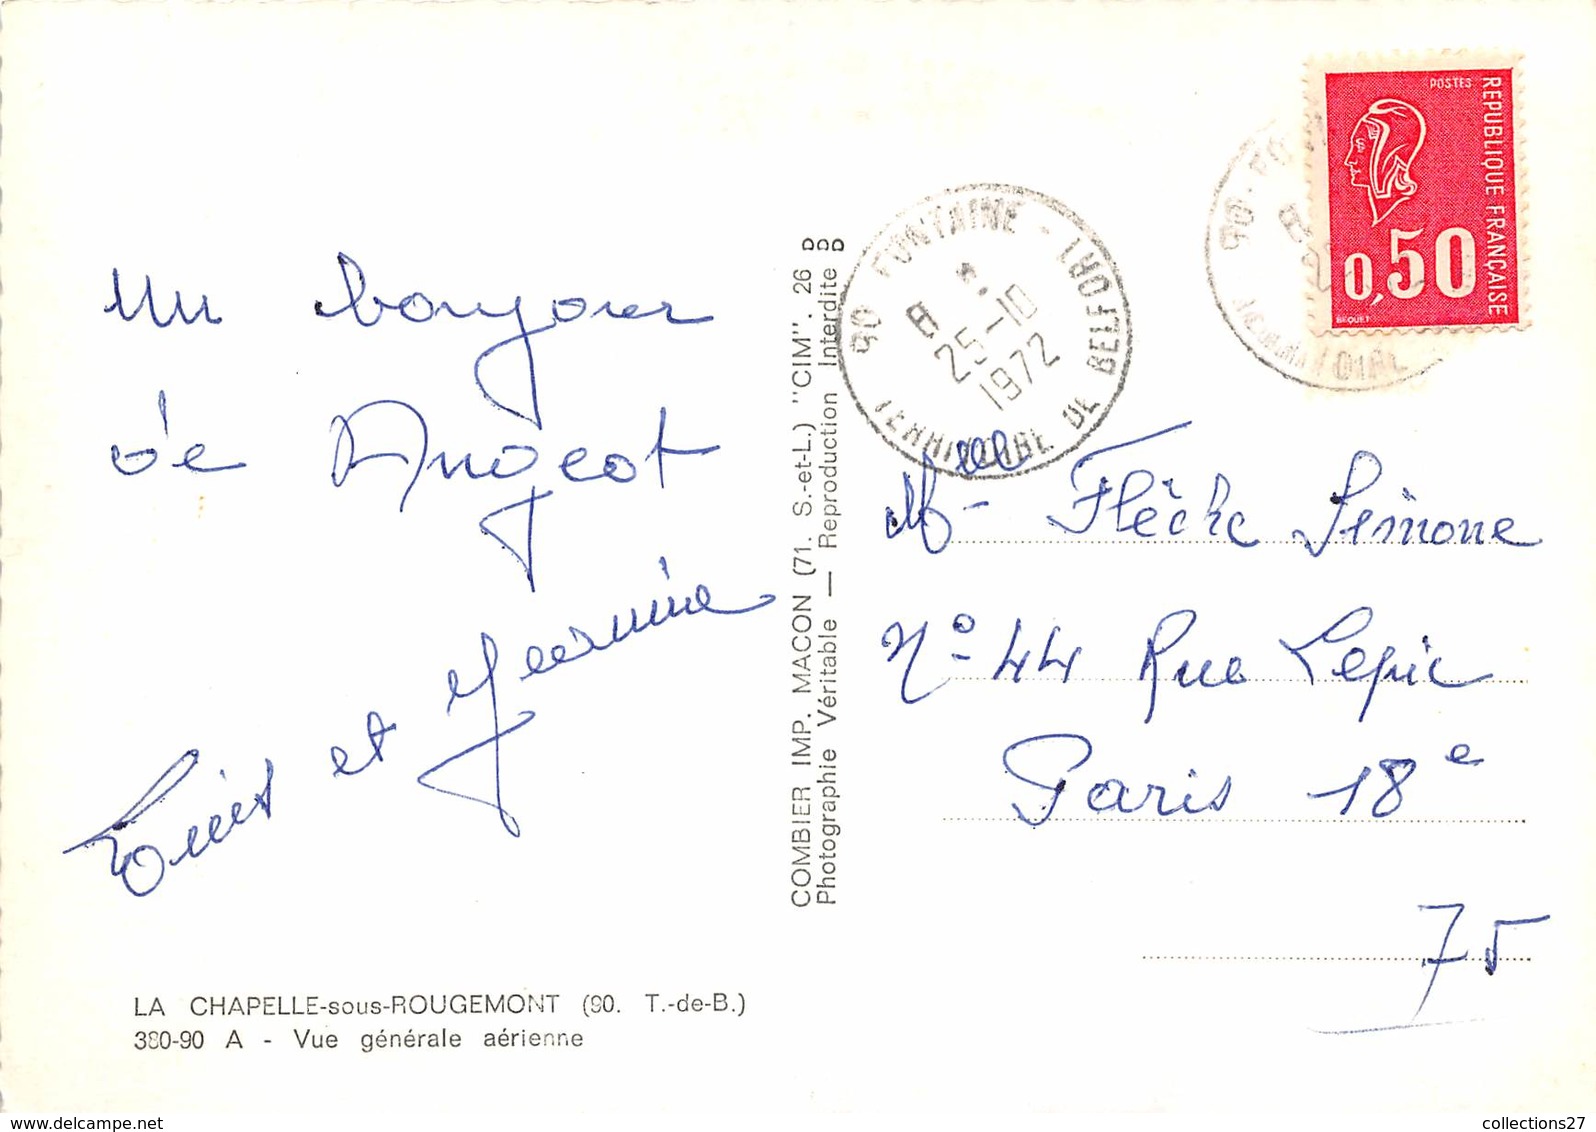 Un bonjour
de Angeot
et Jeannine
LA CHAPELLE-sous-ROUGEMONT (90. T.-de-B.)
380-90 A - Vue générale aérienne
COMBIER IMP. MACON (71. S.-et-L.) "CIM". 26 D
Photographie Véritable — Reproduction Interdite
90 FONTAINE - TERRITOIRE DE BELFORT
25-10
1972
POSTES
REPUBLIQUE FRANÇAISE
0,50
BEQUET
Mlle Flèche Simone
N° 44 Rue Lepic
Paris 18e
75
collections27